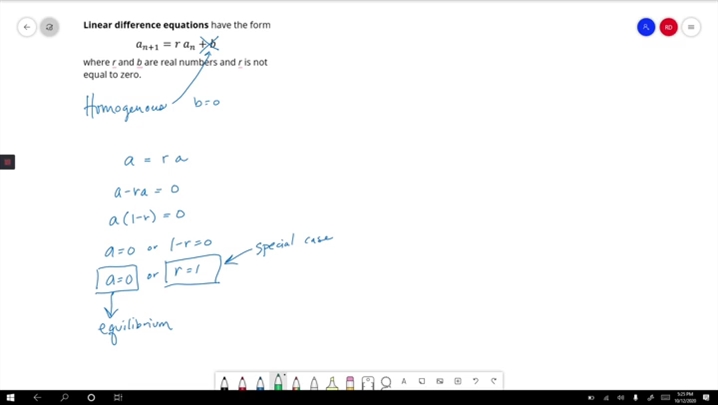 Linear difference equations have the form
aₙ₊₁ = r aₙ + b
where r and b are real numbers and r is not
equal to zero.
Homogenous b=0
a = r a
a-ra = 0
a(1-r) = 0
a=0 or 1-r=0
special case
a=0 or r=1
equilibrium
RD
A
5:25 PM
10/12/2020